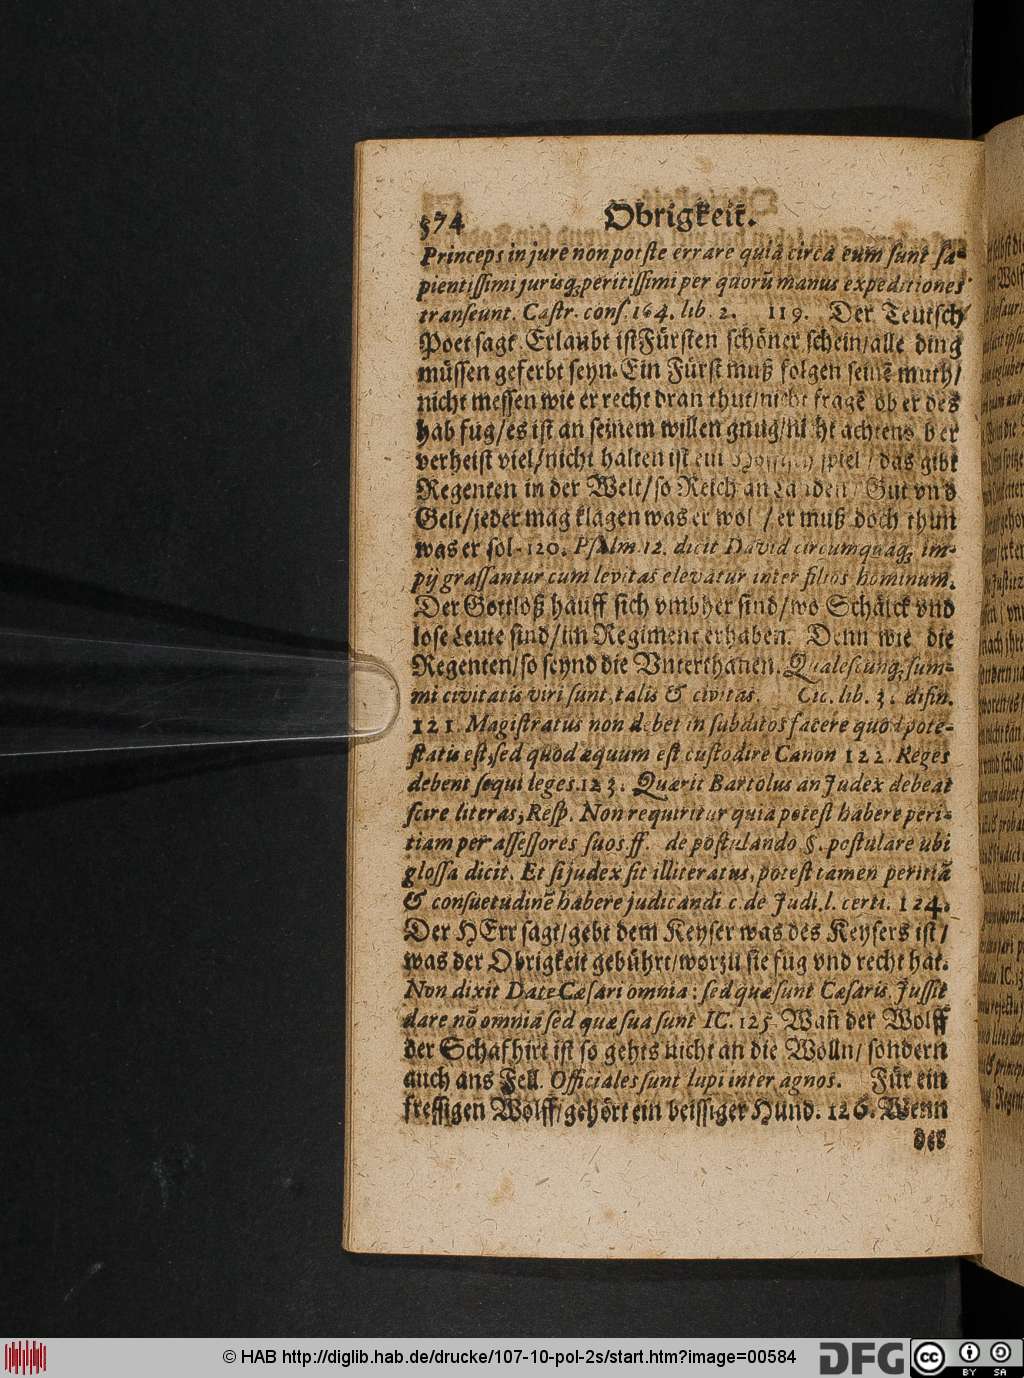 574 Obrigkeit.
Princeps in jure non potste errare quià circà eum sunt sa-
pientissimi jurisq; peritissimi per quorũ manus expeditiones
transeunt. Castr. cons. 164. lib. 2. 119. Der Teutsch
Poet sagt. Erlaubt ist Fürsten schöner schein/alle ding
müssen geferbt seyn. Ein Fürst muß folgen seinẽ muth/
nicht messen wie er recht dran thut/nicht fragẽ ob er des
hab fug/es ist an seinem willen gnug/nicht achtens ber
verheist viel/nicht halten ist ein spiel/das gibt
Regenten in der Welt/so Reich an Landen/Gut vnd
Gelt/jeder mag klagen was er wol/er muß doch thun
was er sol. 120. Psalm. 12. dicit David circumquaq; im-
pij grassantur cum levitas elevatur inter filios hominum.
Der Gottloß hauff sich vmbher find/wo Schälck vnd
lose Leute sind/im Regiment erhaben. Denn wie die
Regenten/so seynd die Vnterthanen. Qualescunq; sum-
mi civitatis viri sunt, talis & civitas. Cic. lib. 3. difin.
121. Magistratus non debet in subditos facere quod pote-
statis est, sed quod æquum est custodire Canon 122. Reges
debent sequi leges. 123. Quærit Bartolus an Judex debeat
scire literas, Resp. Non requiritur quia potest habere peri-
tiam per assessores suos. ff. de postulando §. postulare ubi
glossa dicit. Et si judex sit illiteratus, potest tamen peritiã
& consuetudinẽ habere judicandi c. de Judi. l. certi. 124.
Der HErr sagt/gebt dem Keyser was des Keysers ist/
was der Obrigkeit gebührt/worzu sie fug vnd recht hat.
Non dixit Date Cæsari omnia: sed quæ sunt Cæsaris. Jussit
dare nõ omnia sed quæ sua sunt IC. 125. Wañ der Wolff
der Schafhirt ist so gehts nicht an die Wolln/ sondern
auch ans Fell. Officiales sunt lupi inter agnos. Für ein
fressigen Wolff/gehört ein beissiger Hund. 126. Wenn
der
© HAB http://diglib.hab.de/drucke/107-10-pol-2s/start.htm?image=00584
DFG
cc
BY SA